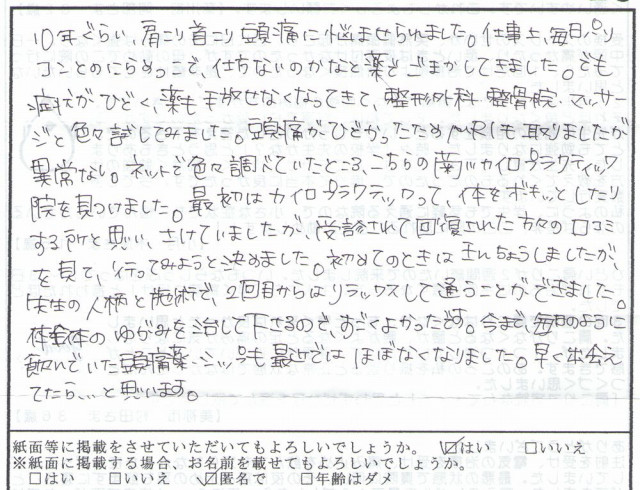 10年ぐらい、肩こり首こり頭痛に悩ませられました。仕事上、毎日パソ
コンとのにらめっこで、仕方ないのかなと薬でごまかしてきました。でも
症状がひどく、薬も手放せなくなってきて、整形外科、整骨院、マッサー
ジと色々試してみました。頭痛がひどかったためMRIも取りましたが
異常なし。ネットで色々調べていたところ、こちらの南川カイロプラクティック
院を見つけました。最初はカイロプラクティックって、体をボキッとしたり
する所と思い、さけていましたが、受診されて回復された方々の口コミ
を見て、行ってみようと決めました。初めてのときはきんちょうしましたが、
先生の人柄と施術で、2回目からはリラックスして通うことができました。
体全体のゆがみを治して下さるので、すごくよかったです。今まで、毎日のように
飲んでいた頭痛薬、シップも最近ではほぼなくなりました。早く出会え
てたら…と思います。
紙面等に掲載をさせていただいてもよろしいでしょうか。 ☑はい □いいえ
※紙面に掲載する場合、お名前を載せてもよろしいでしょうか。
□はい □いいえ ☑匿名で □年齢はダメ